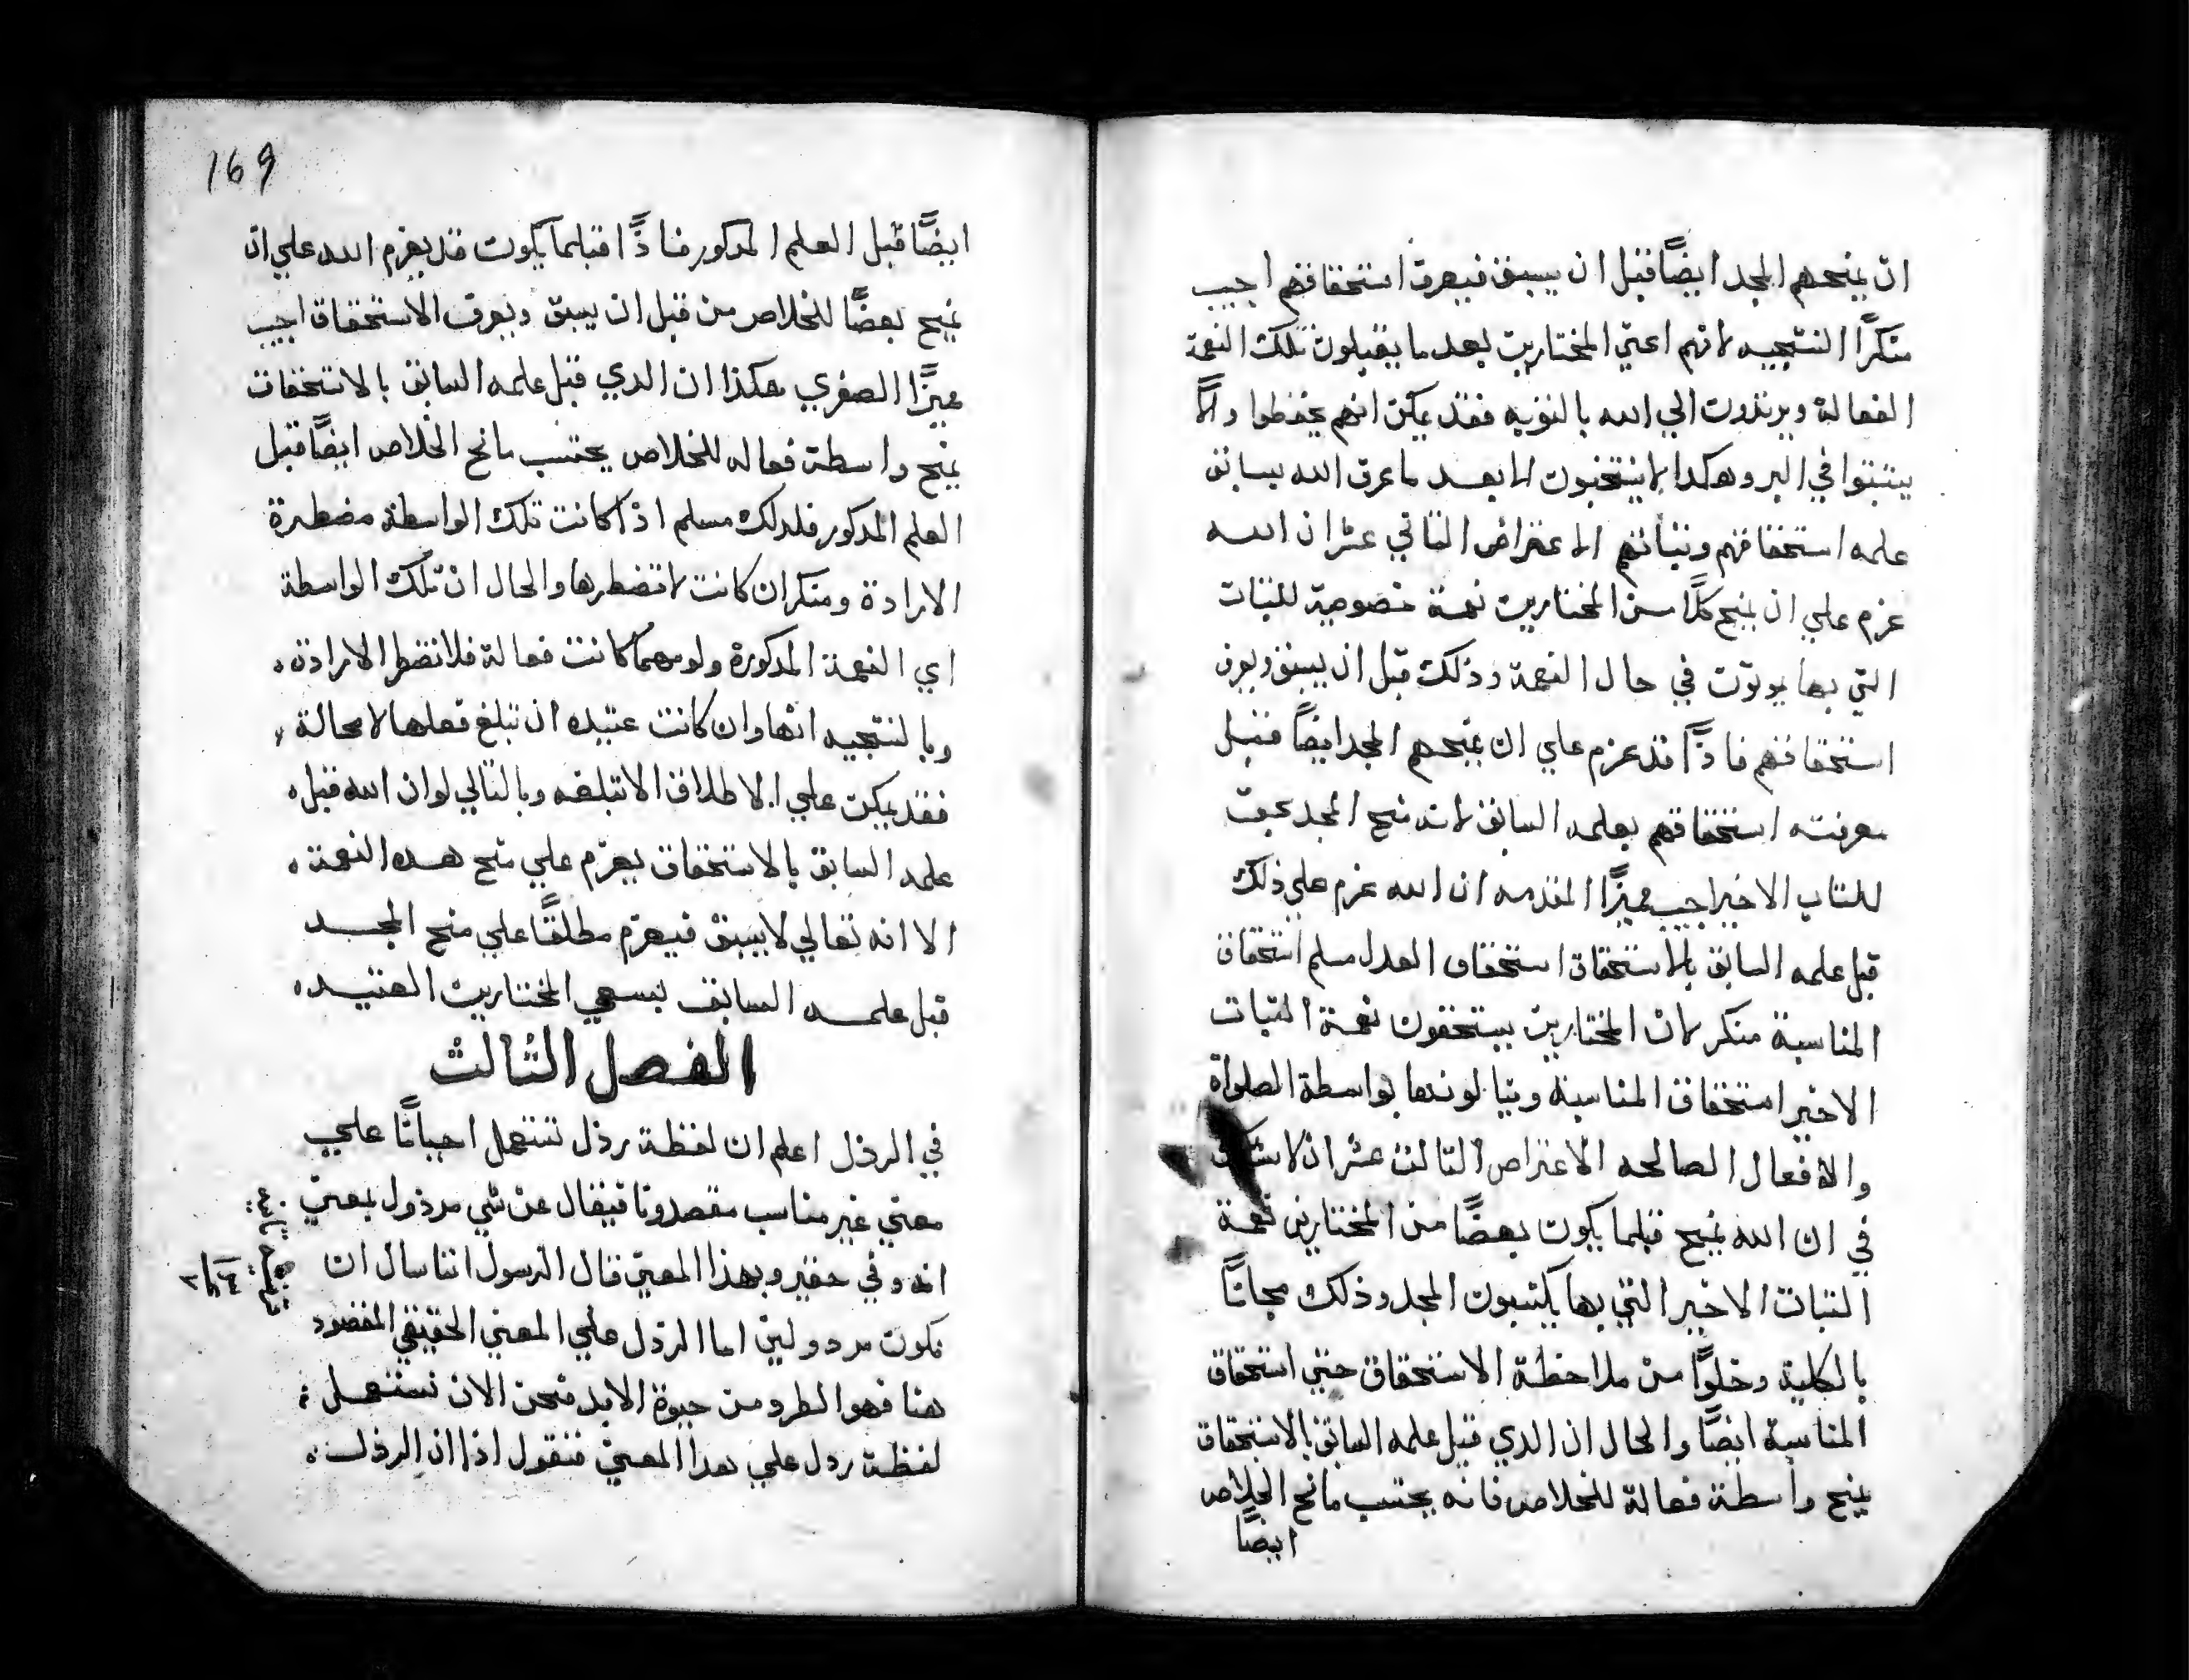 ان يمنحهم المجد ايضًا قبل ان يسبق فيعرف استحقاقهم اجيب
منكرًا النتيجه لانهم اعني المختارين بعد ما يقبلون تلك النعمة
الفعالة ويرتدون الي الله بالتوبه فقد يمكن انهم يحفظوا والّا
يثبتوا في البر وهكدا لا ينتخبون الا بعد ما عرف الله بسابق
علمه استحقاقهم وثباتهم الاعتراض الثاني عشر ان الله
عزم علي ان يمنح كلًا من المختارين نعمة خصوصية للثبات
التي بها يوتون في حال النعمة وذلك قبل ان يسبق ويعرف
استحقاقهم فاذًا قد عزم علي ان يمنحهم المجد ايضًا قبل
معرفته استحقاقهم بعلمه السابق لانه منح المجد عيوت
للثبات الاخير اجيب مميزًا المقدمه ان الله عزم علي ذلك
قبل علمه السابق بالاستحقاق استحقاق العدل مسلم استحقاق
المناسبة منكر لان المختارين يستحقون نعمة الثبات
الاخير استحقاق المناسبة وينالونها بواسطة الصلواة
والافعال الصالحه الاعتراض الثالث عشر ان لا شك
في ان الله يمنح قبلما يكون بعضًا من المختارين نعمة
الثبات الاخير التي بها يكتسبون المجد وذلك مجانًا
بالكلية وخلوًا من ملاحظة الاستحقاق حتي استحقاق
المناسبة ايضًا والحال ان الدي قبل علمه السابق بالاستحقاق
يمنح واسطة فعالة للخلاص فانه يحتسب مانح الخلاص
ايضًا
169
ايضًا قبل العلم المدكور فاذًا قبلما يكون قد يعزم الله علي ان
يمنح بعضًا للخلاص من قبل ان يسبق ويعرف الاستحقاق اجيب
مميزًا الصغري هكذا ان الدي قبل علمه السابق بالاستحقاق
يمنح واسطة فعاله للخلاص يحتسب مانح الخلاص ايضًا قبل
العلم المدكور فلدلك مسلم اذا كانت تلك الواسطة مضطرة
الارادة ومنكر ان كانت لا تضطرها والحال ان تلك الواسطة
اي النعمة المدكورة ولو مهما كانت فعالة فلا تضطر الارادة
وبالنتيجيه انها وان كانت عتيده ان تبلغ فعلها لا محالة
فقد يمكن علي الاطلاق الا تبلغه وبالتالي لو ان الله قبل
علمه السابق بالاستحقاق يعزم علي منح هده النعمة
الا انه تعالي لا يسبق فيعزم مطلقًا علي منح المجد
قبل علمه السابق بسعي المختارين العتيده
الفصل الثالث
في الرذل اعلم ان لفظة رذل تستعمل احيانًا علي
معني غير مناسب مقصدونا فيقال عن شي مرذول بمعني
انه دني حقير وبهذا المعني قال الرسول اننا سال ان
نكون مردولين اما الردل علي المعني الحقيقي المقصود
هنا فهو الطرد من حيوة الابد فنحن الان نستعمل
لفظة ردل علي هدا المعني فنقول اذا ان الرذل